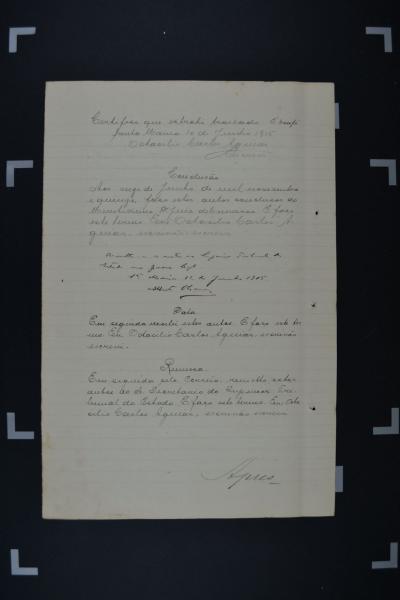 Certifico que extrahi traslado. E dou fé
Santa Maria 10 de Junho 1915
Odacilio Carlos Aguiar
Escrivão
Conclusão
Aos onze de Junho de mil novecentos
e quinze, faço estes autos conclusos ao
E faço
este termo. Eu Odacilio Carlos A
guiar, escrivão escrevi
Superior Tribunal do
Estado
Sta Maria, 11 de Junho 1915
Data
Em seguida recebi estes autos. E faço este ter
mo. Eu, Odacilio Carlos Aguiar, escrivão
escrevi.
Remessa
Em seguida pelo Correio, remetto estes
autos ao Sr Secretario do Superior Tri
bunal do Estado. E faço este termo. Eu Oda
cilio Carlos Aguiar, escrivão escrevi